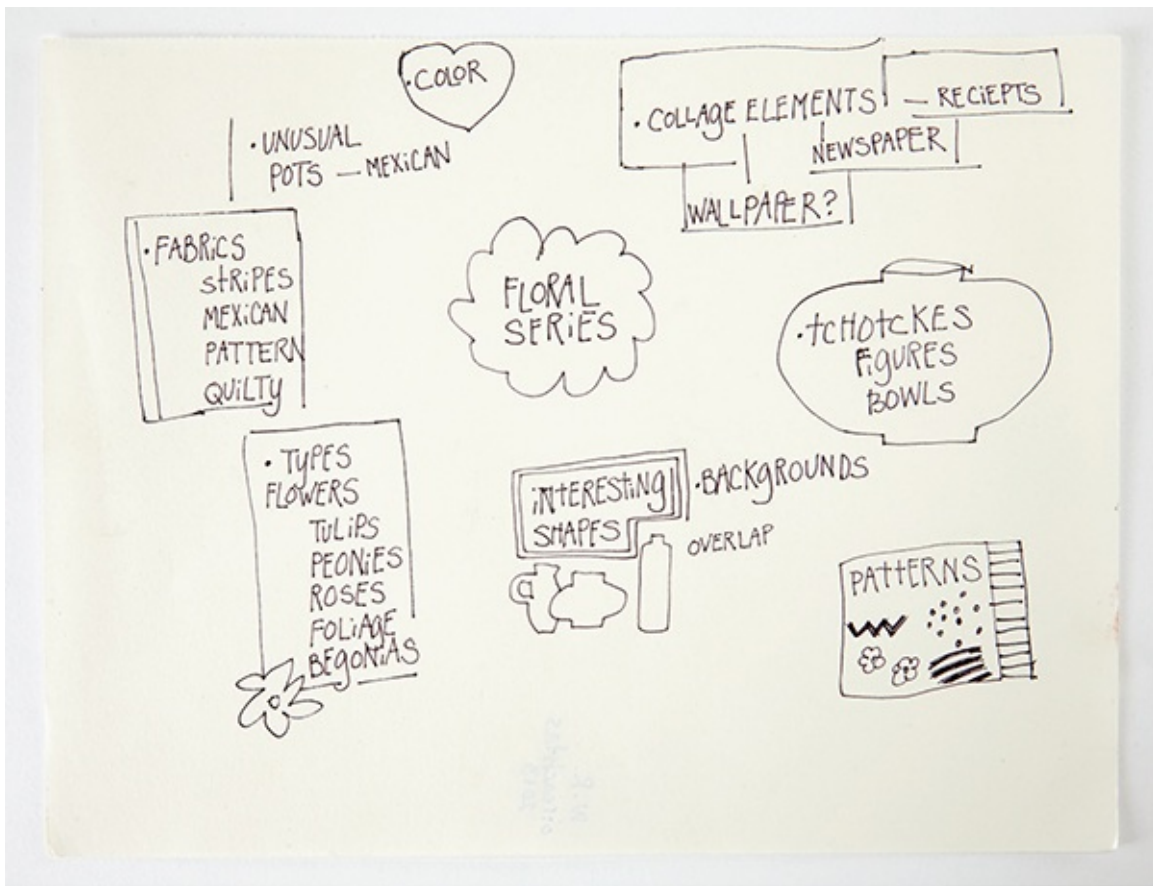 •COLOR
•UNUSUAL
POTS — MEXICAN
•COLLAGE ELEMENTS — RECIEPTS
NEWSPAPER
WALLPAPER?
•FABRICS
STRIPES
MEXICAN
PATTERN
QUILTY
FLORAL
SERIES
•TCHOTCKES
FIGURES
BOWLS
•TYPES
FLOWERS
TULIPS
PEONIES
ROSES
FOLIAGE
BEGONIAS
INTERESTING
SHAPES
•BACKGROUNDS
OVERLAP
PATTERNS